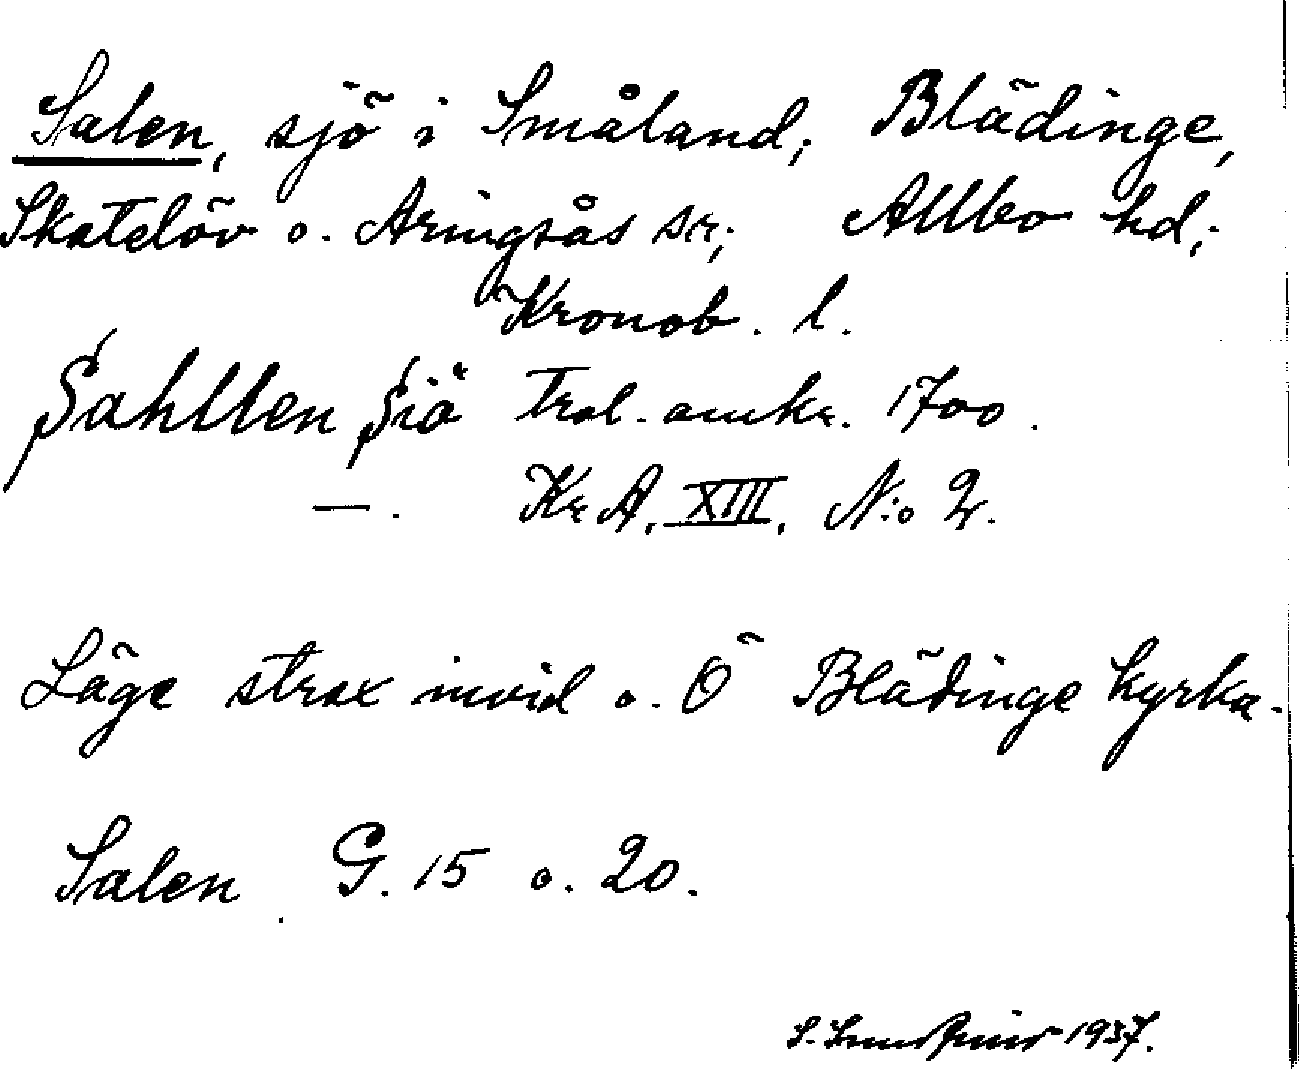 Salen, sjö i Småland; Blädinge,
Skatelöv o. Aringsås sr; Allbo hd;
Kronob. l.
Sahllen Siö Trol. omkr. 1700.
—. Kr A. XIII. N:o 2.
Läge strax invid o. Ö Blädinge kyrka.
Salen G. 15 o. 20.
S. 1937.